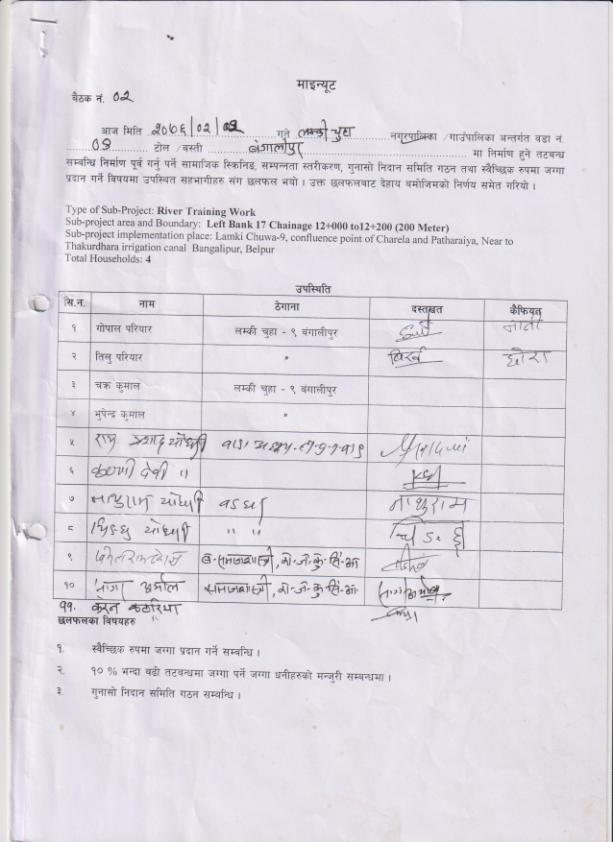 माइन्यूट
बैठक नं. 02
आज मिति २०७६/०२/०९ गते लम्की चुहा नगरपालिका /गाउंपालिका अन्तर्गत वडा नं.
०९ टोल /वस्ती बंगालीपुर मा निर्माण हुने तटबन्ध
सम्बन्धि निर्माण पूर्व गर्नु पर्ने सामाजिक स्क्रिनिङ, सम्पन्नता स्तरीकरण, गुनासो निदान समिति गठन तथा स्वैच्छिक रुपमा जग्गा
प्रदान गर्ने विषयमा उपस्थित सहभागीहरु संग छलफल भयो । उक्त छलफलबाट देहाय बमोजिमको निर्णय समेत गरियो ।
Type of Sub-Project: River Training Work
Sub-project area and Boundary: Left Bank 17 Chainage 12+000 to12+200 (200 Meter)
Sub-project implementation place: Lamki Chuwa-9, confluence point of Charela and Patharaiya, Near to
Thakurdhara irrigation canal Bangalipur, Belpur
Total Households: 4
उपस्थिति
सि.न. नाम ठेगाना दस्तखत कैफियत
१ गोपाल परियार लम्की चुहा - ९ बंगालीपुर
२ तिलु परियार " छोरा
३ चक्र कुमाल लम्की चुहा - ९ बंगालीपुर
४ भुपेन्द्र कुमाल "
५ राम प्रसाद चौधरी
६ देवी "
७ चौधरी नाथुराम
८ चौधरी " "
९
१०
११.
छलफलका विषयहरु
१. स्वैच्छिक रुपमा जग्गा प्रदान गर्ने सम्बन्धि ।
२. १० % भन्दा बढी तटबन्धमा जग्गा पर्ने जग्गा धनीहरुको मन्जुरी सम्बन्धमा ।
३. गुनासो निदान समिति गठन सम्बन्धि ।